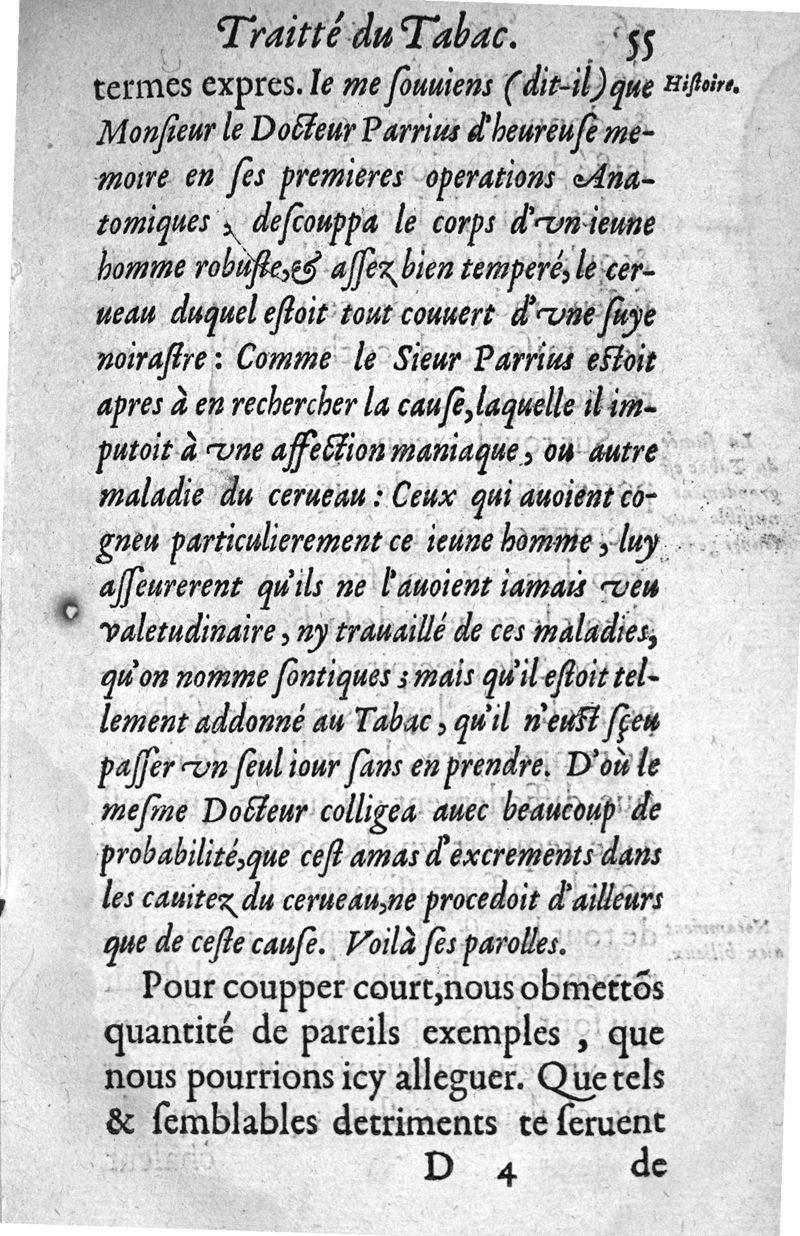 Traitté du Tabac. 55
termes expres. Ie me ſouuiens (dit-il) que Hiſtoire.
Monſieur le Docteur Parrius d'heureuſe me-
moire en ſes premieres operations Ana-
tomiques, deſcouppa le corps d'vn ieune
homme robuſte, & aſſez bien temperé, le cer-
ueau duquel eſtoit tout couuert d'vne ſuye
noiraſtre : Comme le Sieur Parrius eſtoit
apres à en rechercher la cauſe, laquelle il im-
putoit à vne affection maniaque, ou autre
maladie du cerueau : Ceux qui auoient co-
gneu particulierement ce ieune homme, luy
aſſeurerent qu'ils ne l'auoient iamais veu
valetudinaire, ny trauaillé de ces maladies,
qu'on nomme ſontiques ; mais qu'il eſtoit tel-
lement addonné au Tabac, qu'il n'euſt ſçeu
paſſer vn ſeul iour ſans en prendre. D'où le
meſme Docteur colligea auec beaucoup de
probabilité, que ceſt amas d'excrements dans
les cauitez du cerueau, ne procedoit d'ailleurs
que de ceſte cauſe. Voilà ſes parolles.
Pour coupper court, nous obmettõs
quantité de pareils exemples, que
nous pourrions icy alleguer. Que tels
& ſemblables detriments te ſeruent
D 4 de